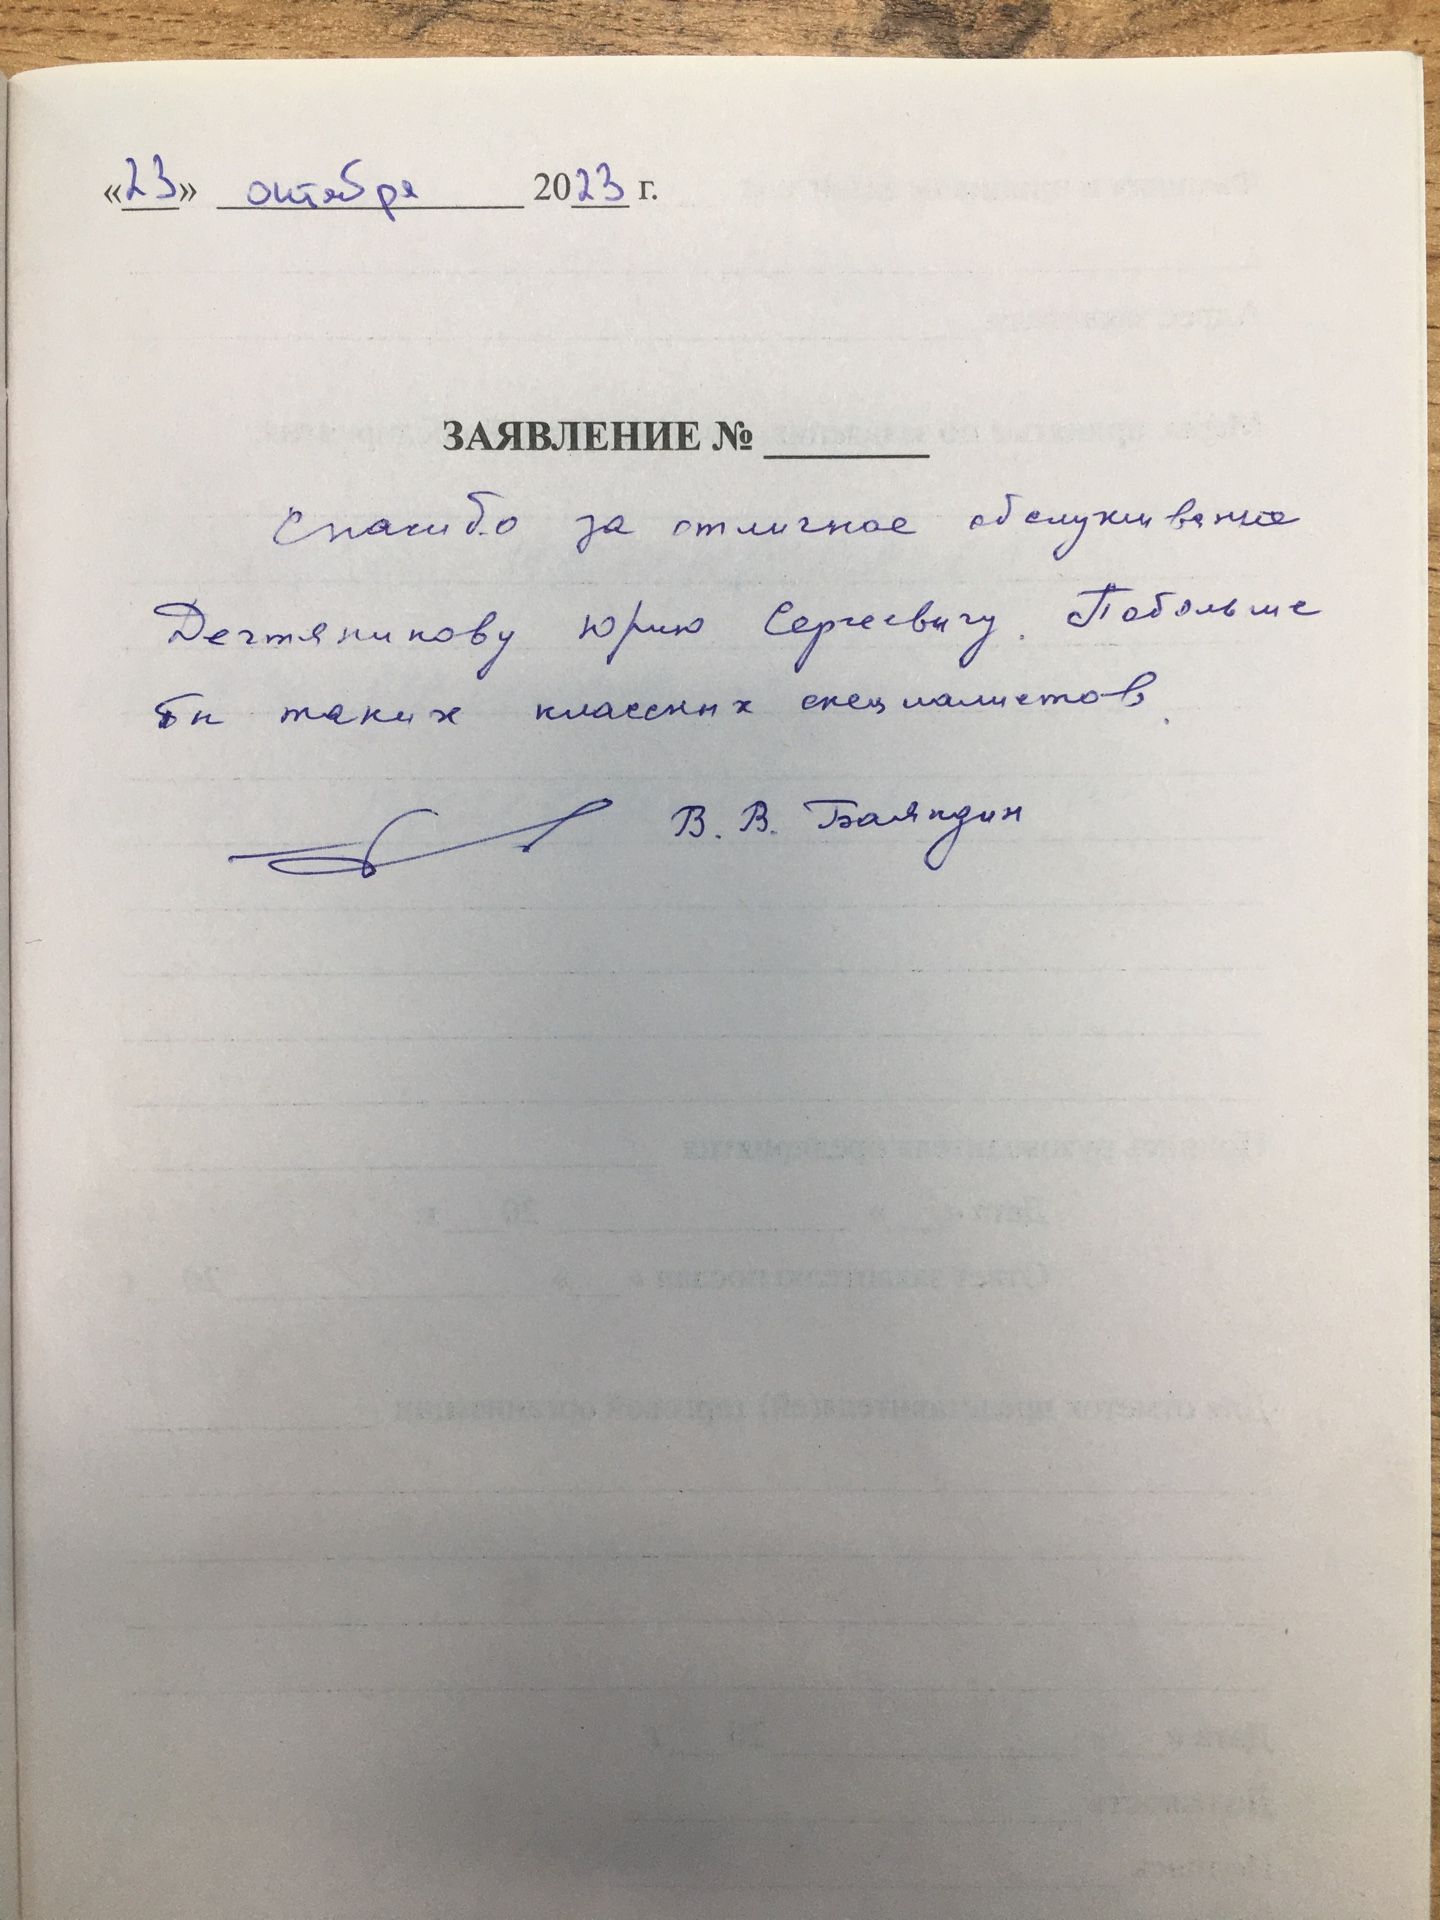 «23» октября 2023 г.
ЗАЯВЛЕНИЕ № ________
Спасибо за отличное обслуживание
Дегтяникову Юрию Сергеевичу. Побольше
бы таких классных специалистов.
В. В.